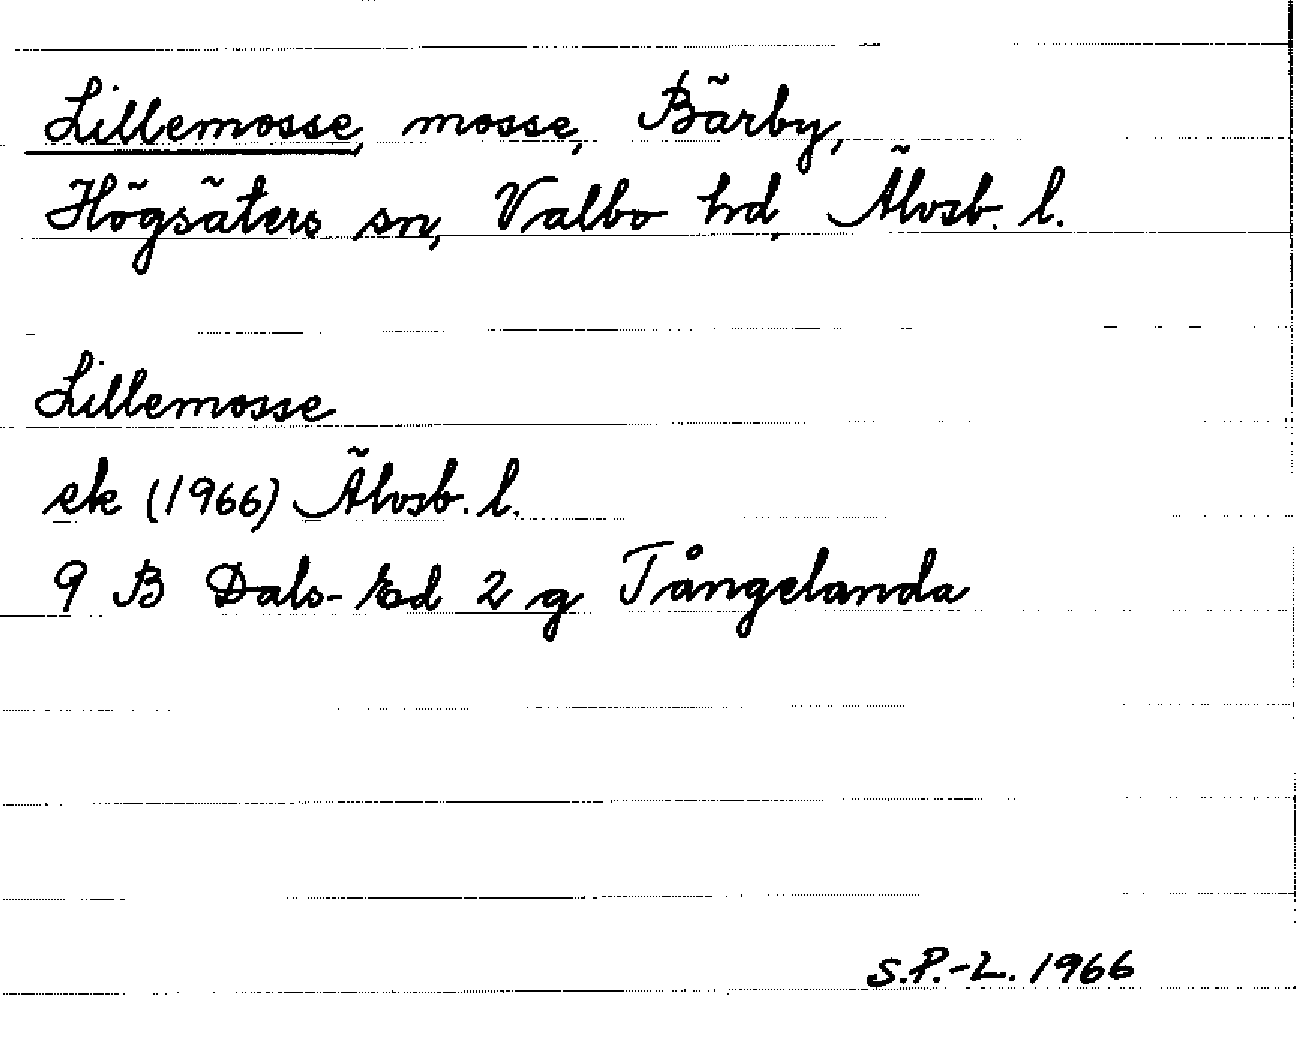 Lillemosse, mosse, Bärby,
Högsäters sn, Valbo hd, Älvsb. l.
Lillemosse
ek (1966) Älvsb. l.
9 B Dals-Ed 2 g Tångelanda
S.P.-L. 1966